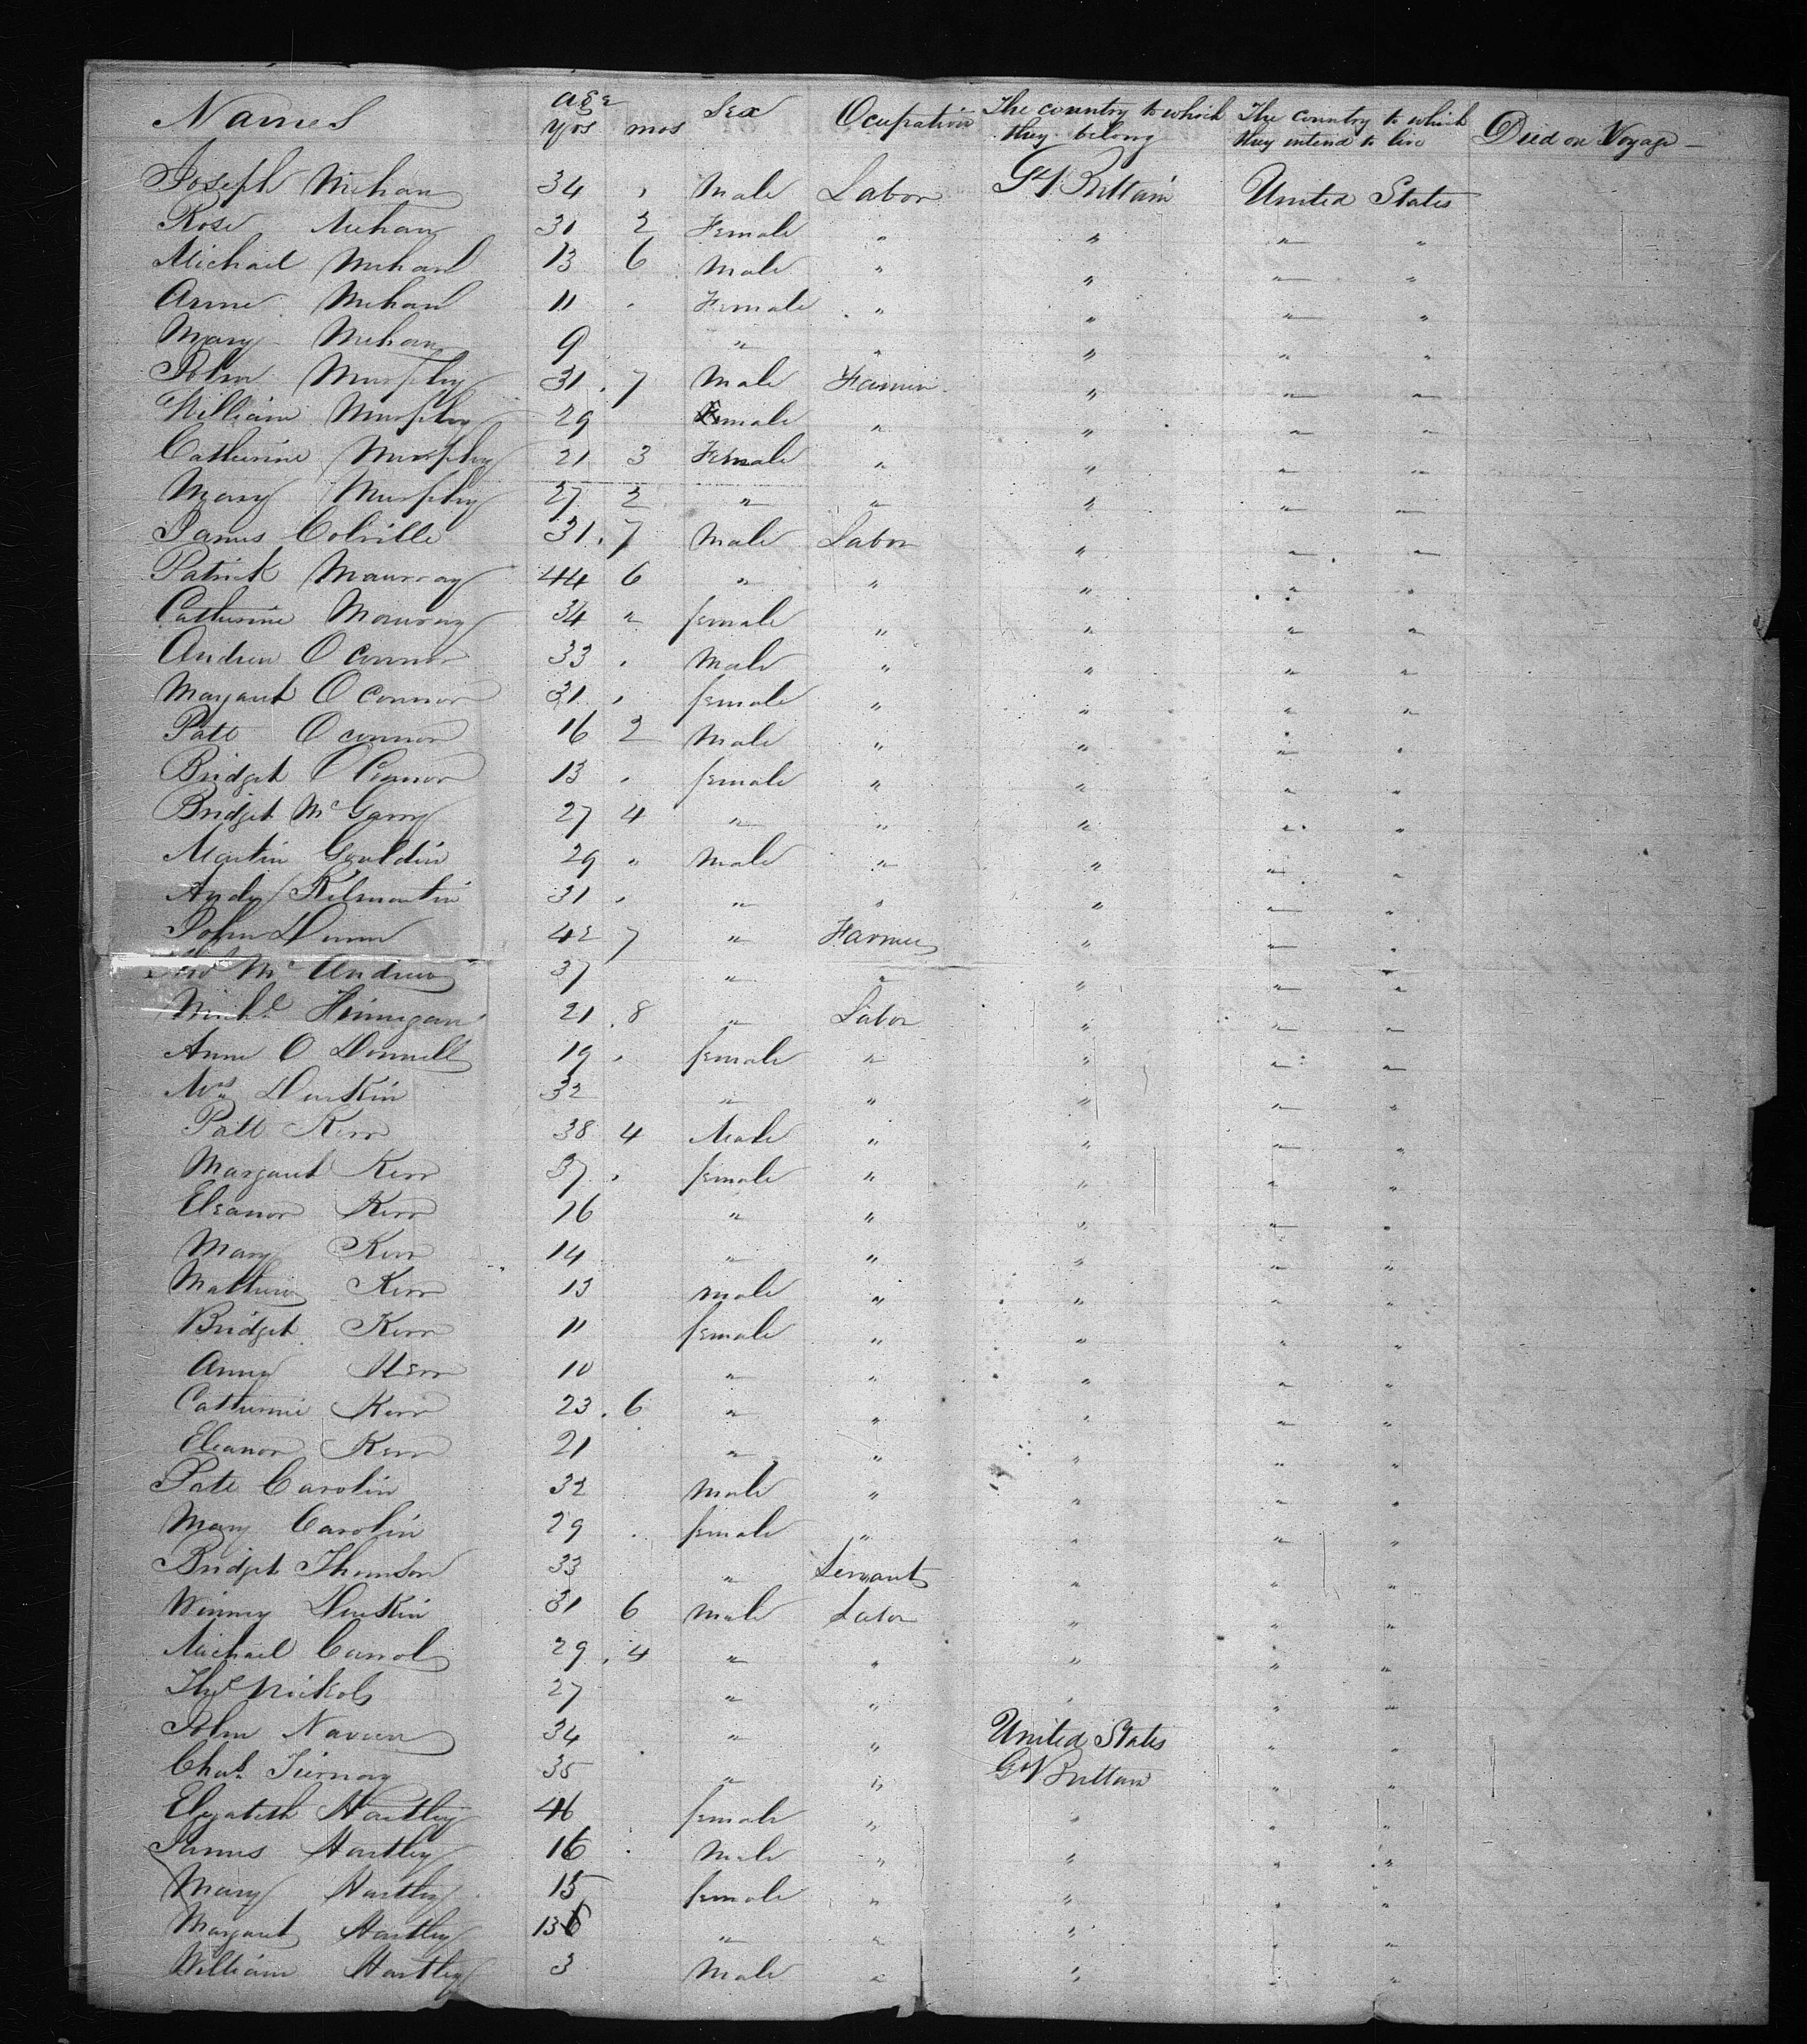 Names age yrs mos Sex Ocupation The country to which they belong The country to which they intend to live Died on Voyage —
Joseph Mehan 34 " Male Labor Gt Brittain United States
Rose Mehan 31 2 Female " " " "
Michael Mehan 13 6 Male " " " "
Anne Mehan 11 " Female " " " "
Mary Mehan 9 " " " " "
John Murphy 31 7 Male Farmer " " "
William Murphy 29 male " " " "
Catherine Murphy 21 3 Female " " " "
Mary Murphy 27 2 " " " " "
James Colville 31 7 Male Labor " " "
Patrick Maurray 44 6 " " " " "
Catherine Maurray 34 " female " " " "
Andrew O Connor 33 " Male " " " "
Margaret O Connor 31 " female " " " "
Patt O Connor 16 2 Male " " " "
Bridget O Connor 13 " female " " " "
Bridget McGarry 27 4 " " " " "
Martin Gouldin 29 " Male " " " "
Andy Kilmartin 31 " " " " " "
John Dunn 42 7 " Farmer " " "
Mc Andrew 37 " " " " "
Michl Finnegan 21 8 " Labor " " "
Anne O Donnell 19 " female " " " "
Mrs Durkin 32 " " " " "
Patt Kerr 38 4 Male " " " "
Margaret Kerr 37 " female " " " "
Eleanor Kerr 16 " " " " "
Mary Kerr 14 " " " " "
Mathew Kerr 13 male " " " "
Bridget Kerr 11 female " " " "
Anny Kerr 10 " " " " "
Catherine Kerr 23 6 " " " " "
Eleanor Kerr 21 " " " "
Pate Carolin 32 Male " " " "
Mary Carolin 29 " female " " " "
Bridget Thomson 33 " Servant " " "
Winney Durkin 31 6 male Labor " " "
Michael Carrol 29 4 " " " " "
Thos Nickols 27 " " " " "
John Naveen 34 " " United States " "
Chas Tiernay 35 " " Gt Brittain " "
Elizabeth Hartley 46 female " " " "
James Hartley 16 " Male " " " "
Mary Hartley 15 female " " " "
Margaret Hartley 13 " " " " "
William Hartley 3 Male " " " "